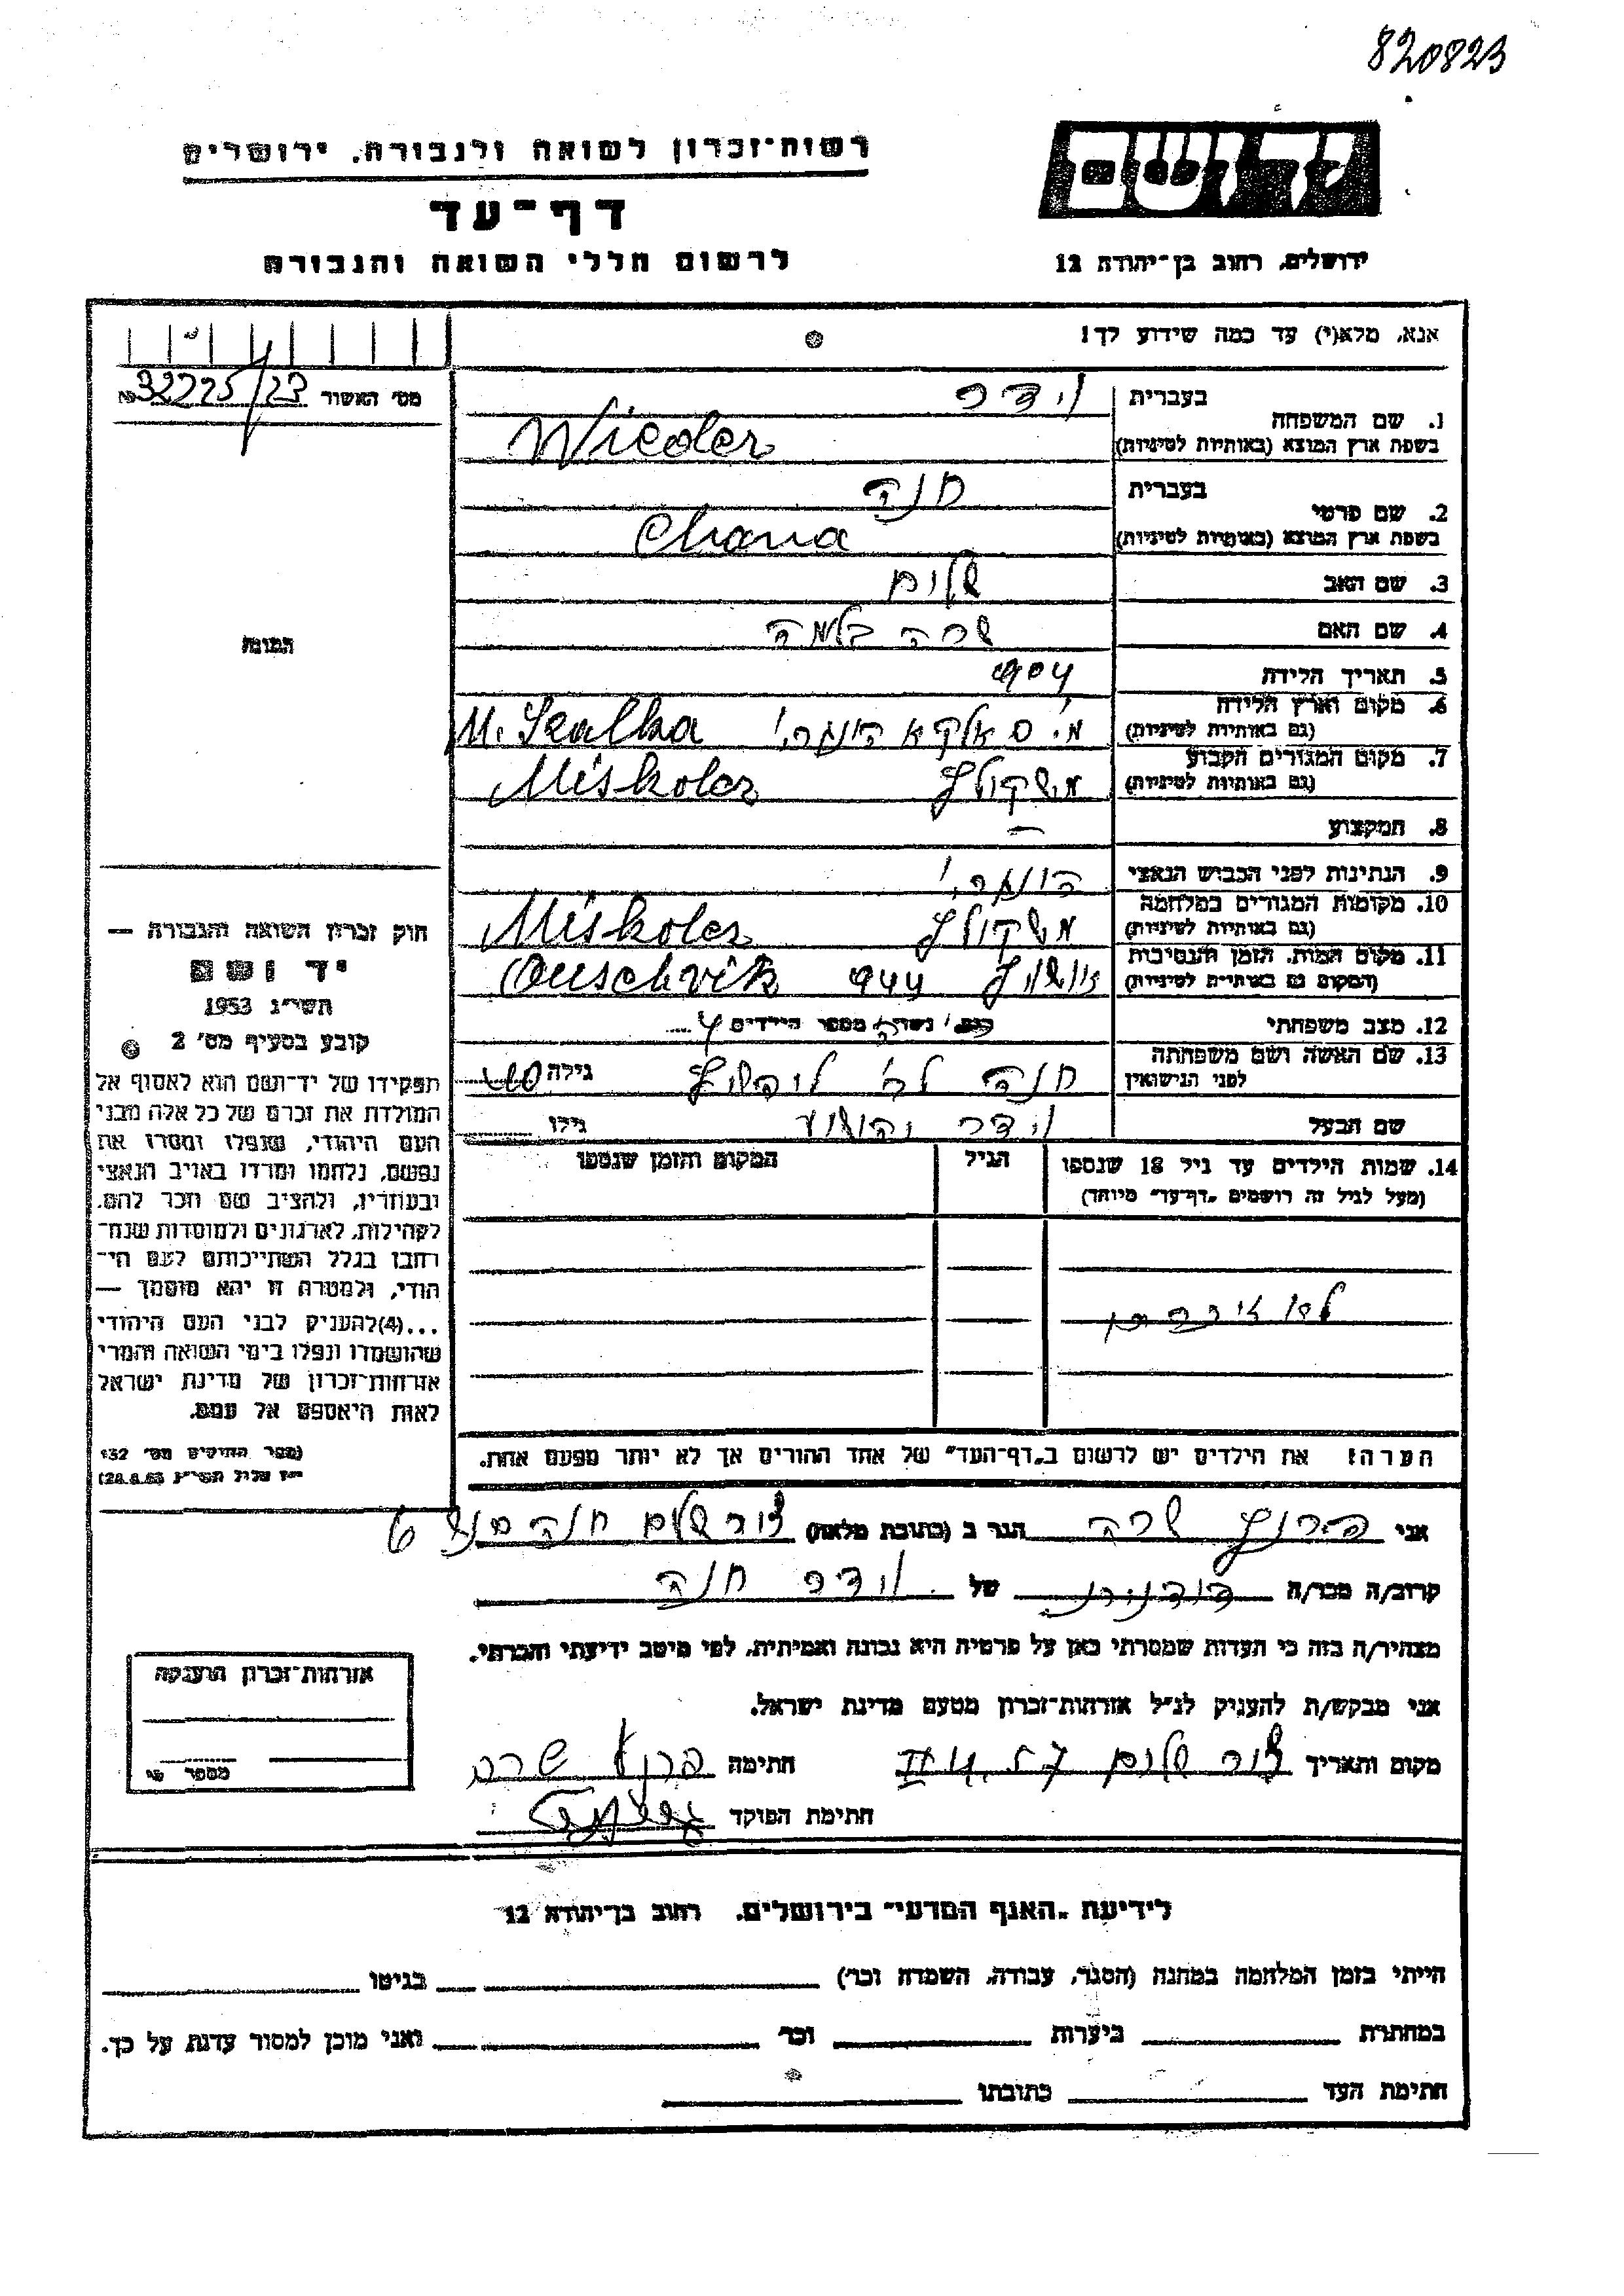 820823
יד ושם
רשות־זכרון לשואה ולגבורה, ירושלים
דף־עד
לרשום חללי השואה והגבורה
ירושלים, רחוב בן־יהודה 12
אנא, מלא(י) עד כמה שידוע לך!
מס׳ האשור 32225/23 №
1. שם המשפחה
בעברית וידר
בשפת ארץ המוצא (באותיות לטיניות) Wieder
2. שם פרטי
בעברית חנה
בשפת ארץ המוצא (באותיות לטיניות) Chana
3. שם האב שלום
4. שם האם שרה בלומה
5. תאריך הלידה 904
6. מקום וארץ הלידה
(גם באותיות לטיניות) מ. סאלקא הונגרי M. Szalka
7. מקום המגורים הקבוע
(גם באותיות לטיניות) מישקולץ Miskolcz
8. המקצוע —
9. הנתינות לפני הכבוש הנאצי הונגרי
10. מקומות המגורים במלחמה
(גם באותיות לטיניות) מישקולץ Miskolcz
11. מקום המות, הזמן והנסיבות
(המקום גם באותיות לטיניות) אושויץ 944 Ouschvitz
12. מצב משפחתי נשוי/ה מספר הילדים 4
13. שם האשה ושם משפחתה
לפני הנישואין חנה לב׳ ליבוביץ גילה 40
שם הבעל וידר יהושע גילו
14. שמות הילדים עד גיל 18 שנספו
(מעל לגיל זה רושמים „דף־עד״ מיוחד)
הגיל
המקום והזמן שנספו
לא
הערה! את הילדים יש לרשום ב„דף־העד״ של אחד ההורים אך לא יותר מפעם אחת.
התמונה
חוק זכרון השואה והגבורה —
יד ושם
תשי״ג 1953
קובע בסעיף מס׳ 2
תפקידו של יד־ושם הוא לאסוף אל
המולדת את זכרם של כל אלה מבני
העם היהודי, שנפלו ומסרו את
נפשם, נלחמו ומרדו באויב הנאצי
ובעוזריו, ולהציב שם וזכר להם,
לקהילות, לארגונים ולמוסדות שנח־
רבו בגלל השתייכותם לעם הי־
הודי, ולמטרה זו יהא מוסמך —
...(4)להעניק לבני העם היהודי
שהושמדו ונפלו בימי השואה והמרי
אזרחות־זכרון של מדינת ישראל
לאות היאספם אל עמם.
(ספר החוקים מס׳ 132
י״ז אלול תשי״ג 28.8.53)
אני שרה הגר ב (כתובת מלאה) צור שלום חנה סנש 6
קרוב/ה מכר/ה של וידר חנה
מצהיר/ה בזה כי העדות שמסרתי כאן על פרטיה היא נכונה ואמיתית, לפי מיטב ידיעתי והכרתי.
אני מבקש/ת להעניק לנ״ל אזרחות־זכרון מטעם מדינת ישראל.
מקום ותאריך צור שלום חתימה שרה
חתימת הפוקד
אזרחות־זכרון הוענקה
מספר
לידיעת „האגף המדעי״ בירושלים, רחוב בן־יהודה 12
הייתי בזמן המלחמה במחנה (הסגר, עבודה, השמדה וכו׳) בגיטו
במחתרת ביערות וכו׳ ואני מוכן למסור עדות על כך.
חתימת העד כתובתו